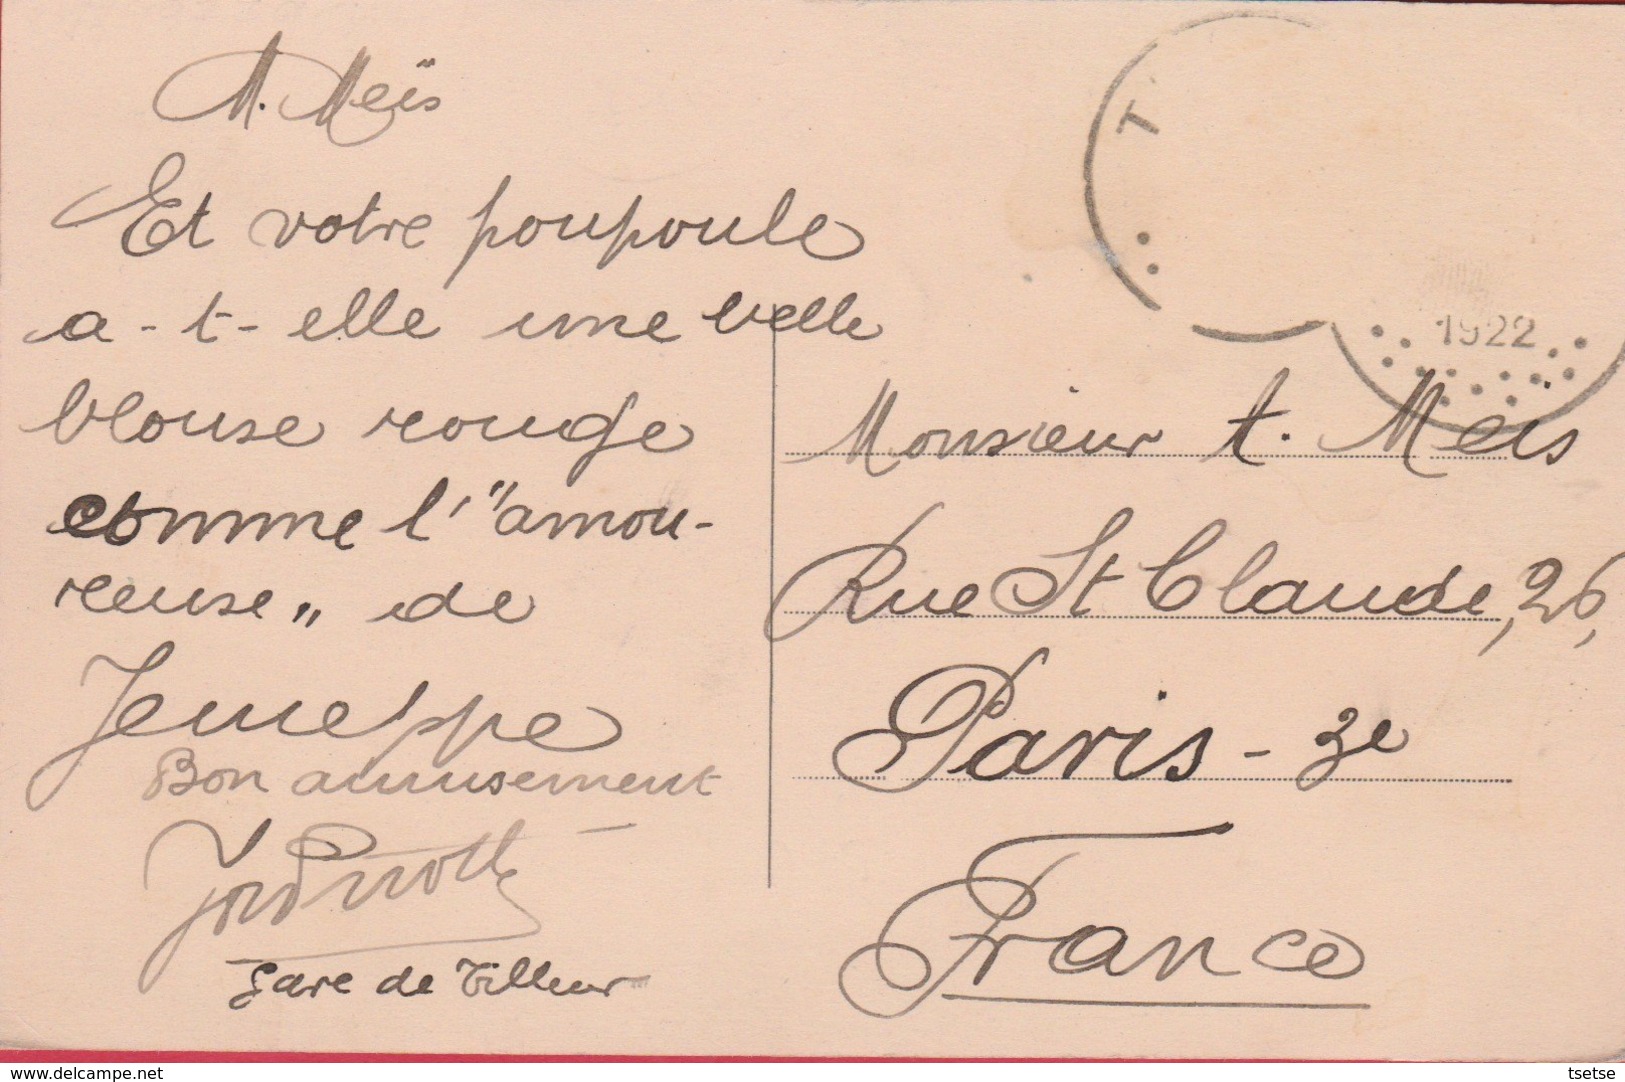 M. Meïs
Et votre poupoule
a-t-elle une belle
blouse rouge
comme l'"amou-
reuse„ de
Jemeppe
Bon amusement
Gare de Tilleur
T.
1922
Monsieur A. Meïs
Rue St Claude, 26,
Paris - 3e
France
www.delcampe.net
tsetse